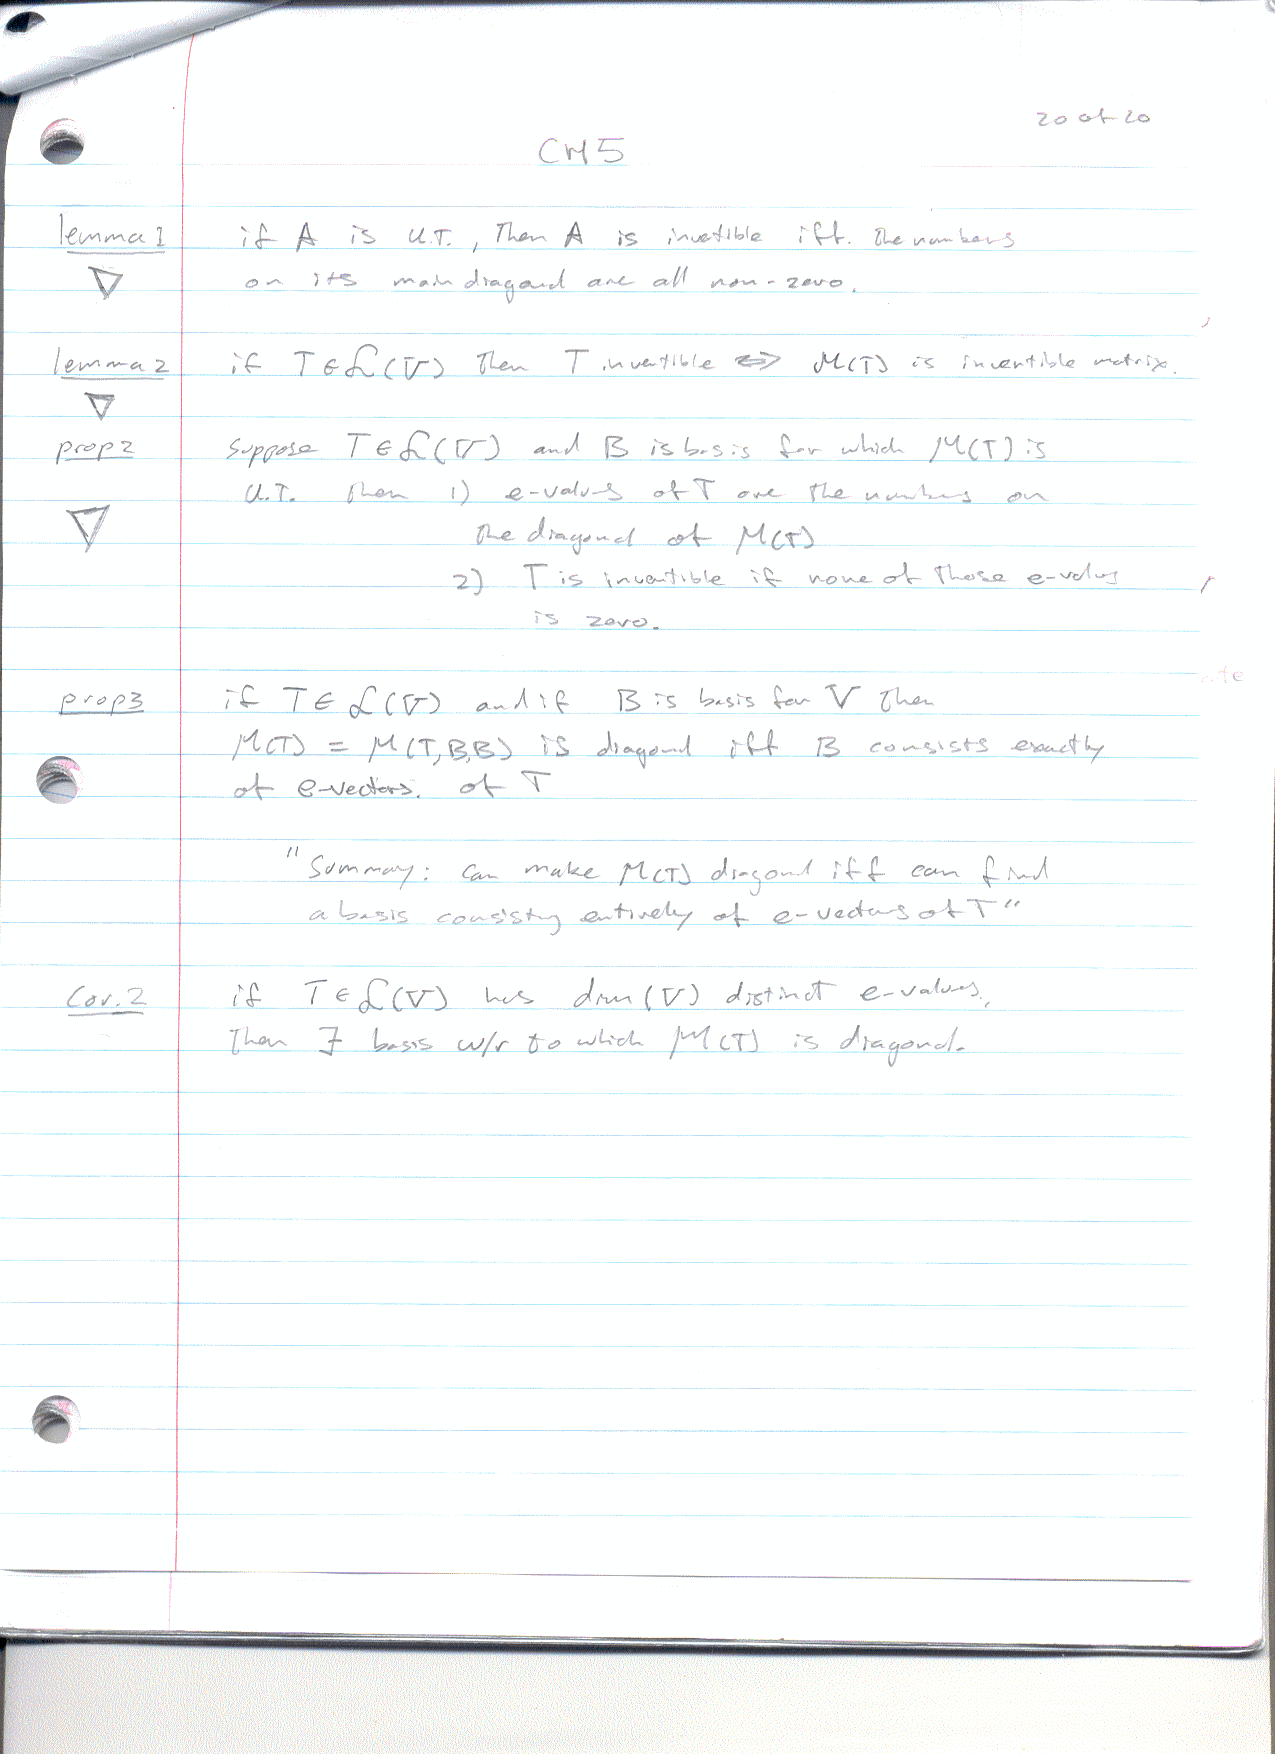 20 of 20
CH5
lemma 1 if A is U.T., Then A is invertible iff. the numbers
on its main diagonal are all non-zero.
lemma 2 if T ∈ ℒ(V) Then T invertible ⇔ M(T) is invertible matrix.
prop 2 Suppose T ∈ ℒ(V) and B is basis for which M(T) is
U.T. Then 1) e-values of T are the numbers on
the diagonal of M(T)
2) T is invertible if none of those e-values
is zero.
prop 3 if T ∈ ℒ(V) and if B is basis for V Then
M(T) = M(T,B,B) is diagonal iff B consists exactly
of e-vectors. of T
"Summary: Can make M(T) diagonal iff can find
a basis consisting entirely of e-vectors of T"
Cor. 2 if T ∈ ℒ(V) has dim(V) distinct e-values,
Then ∃ basis w/r to which M(T) is diagonal.